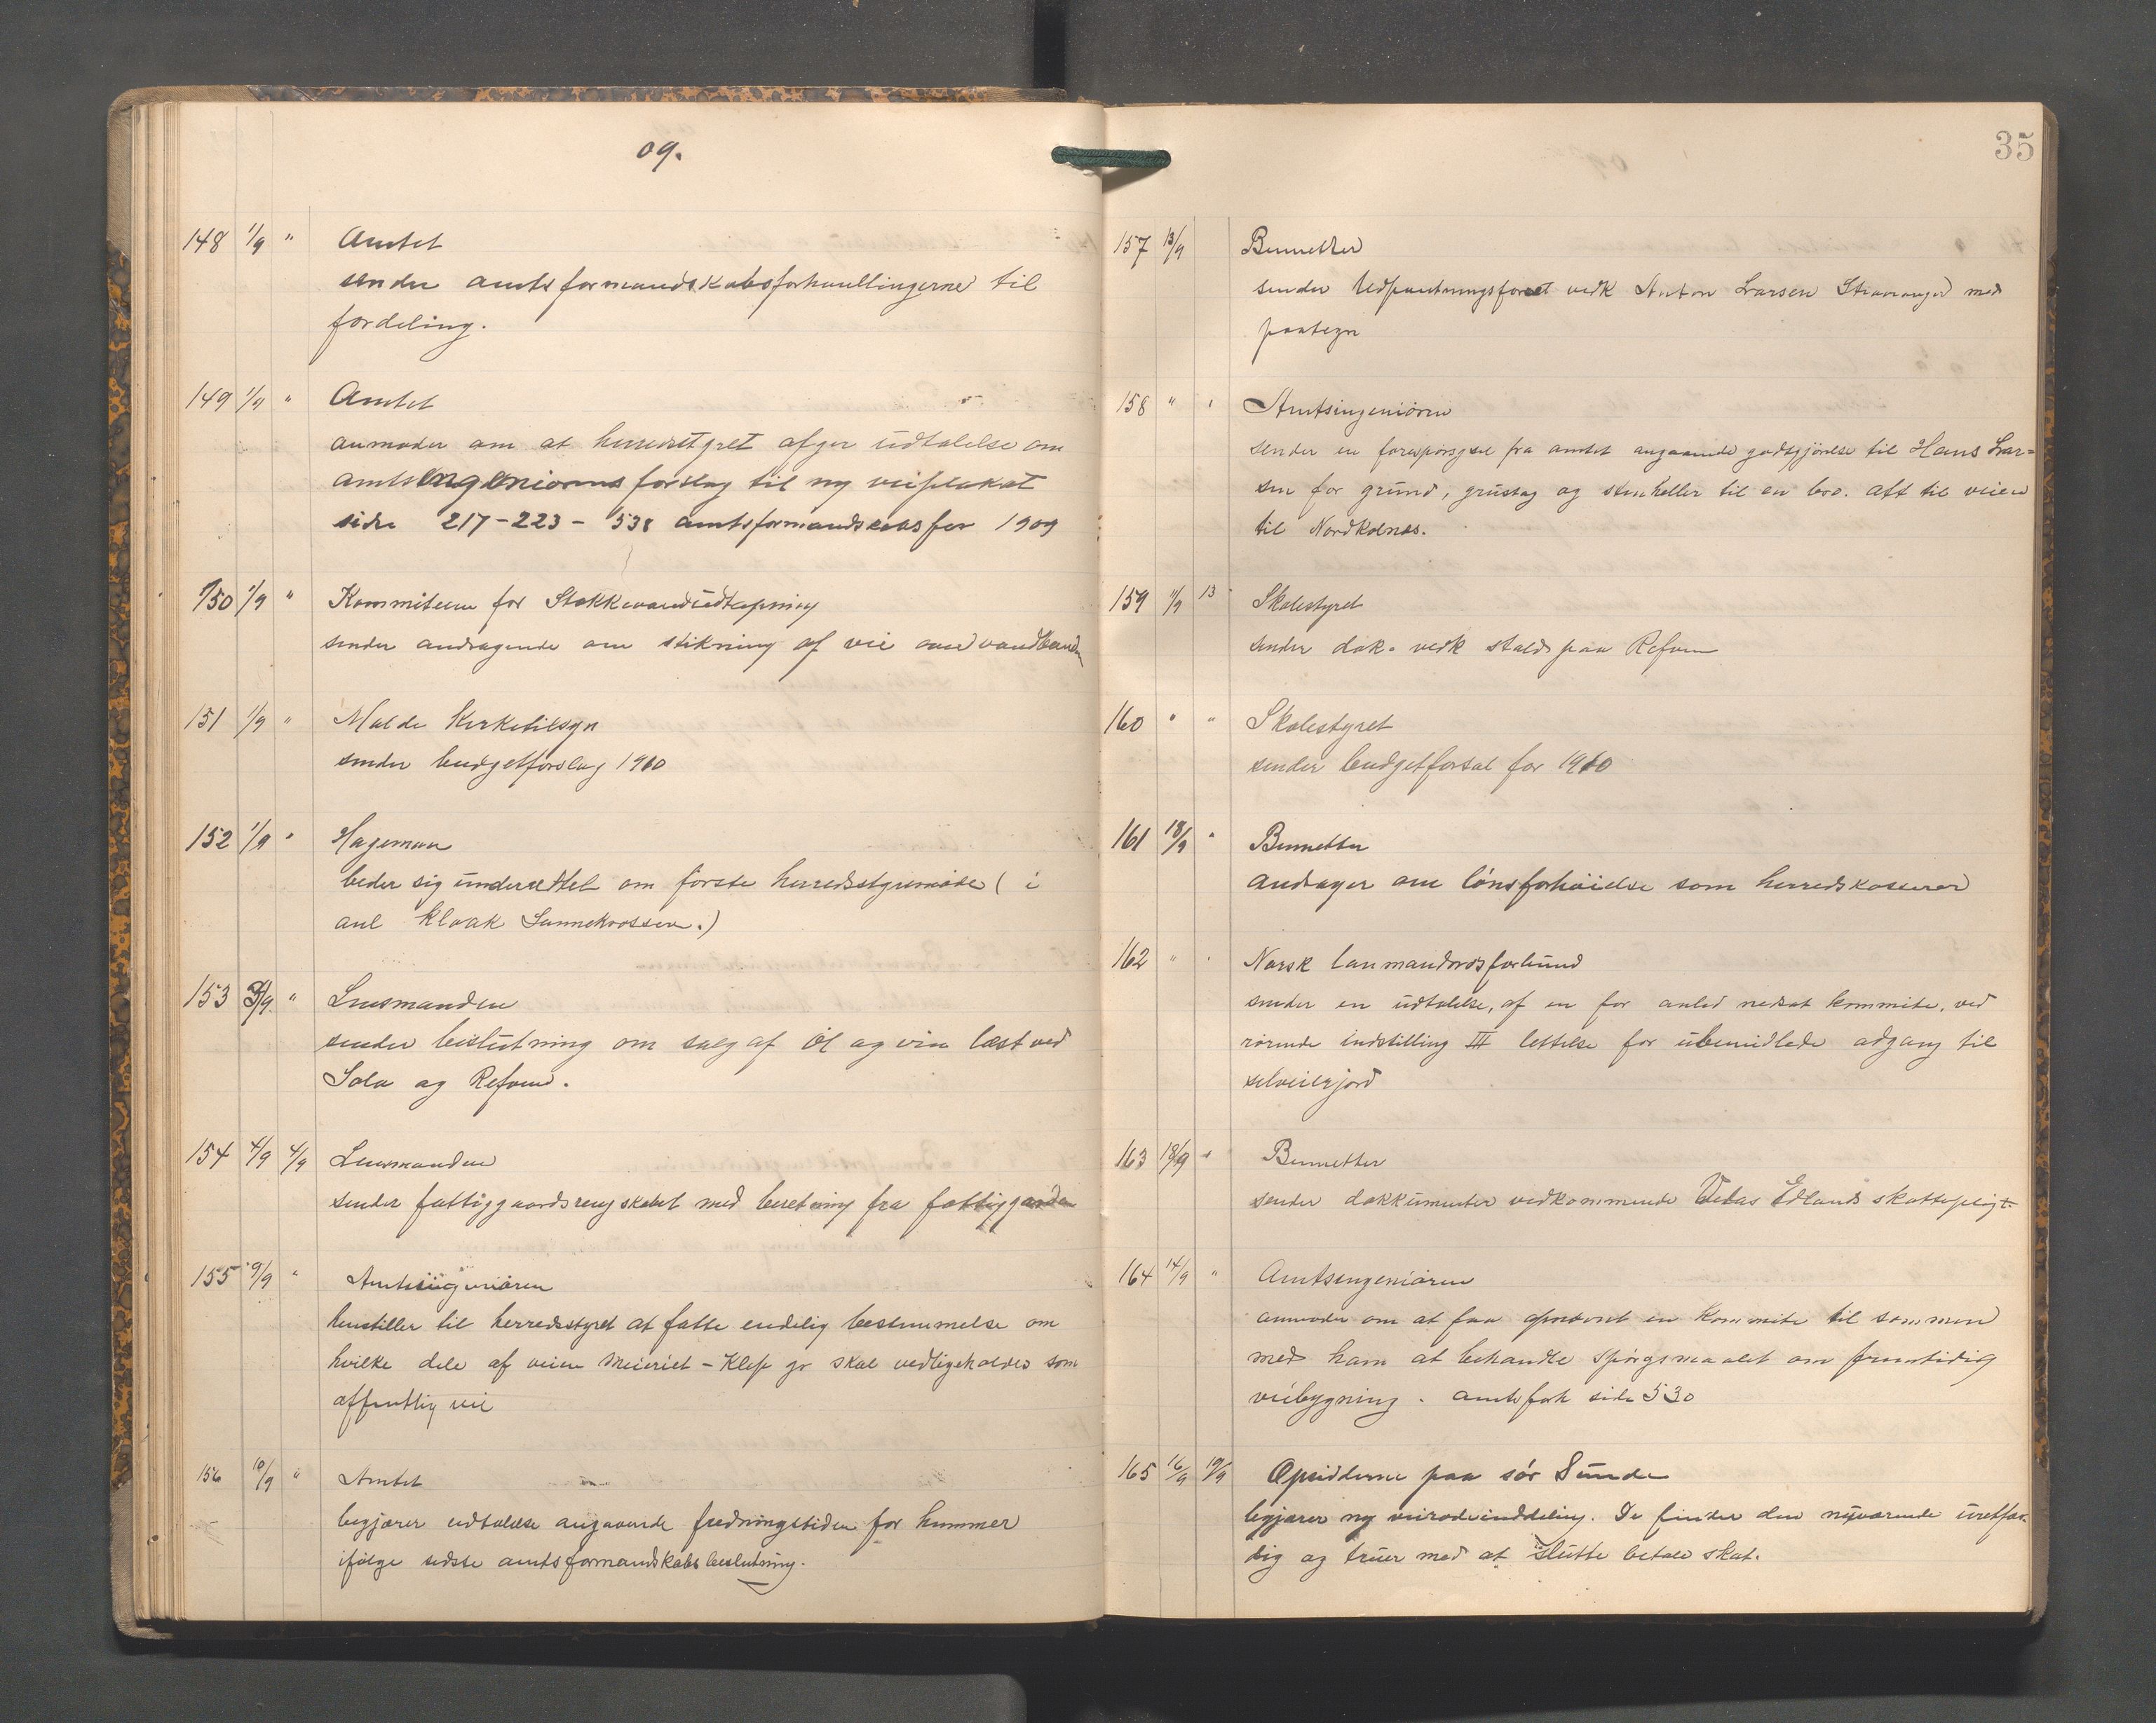 09.
148 1/9 " Amtet
sender amtsformandskabsforhandlingerne til
fordeling.
149 1/9 " Amtet
anmoder om at herredstyret afger udtalelse om
amtsingeniørens forslag til ny veiplakat
side 217-223-538 amtsformandskabsfor 1909
150 1/9 " Kommiteen for Stokkevandudtapning
sender andragende om stikning af vei
151 1/9 " Malde Kirketilsyn
sender budgetforslag 1910
152 1/9 " Hageman
beder sig underrettet om første herredsstyremøde ( i
anl kloak .)
153 3/9 " Lensmanden
sender beslutning om salg af øl og vin læst ved
Sola og Refsum.
154 4/9 4/9 Lensmanden
sender fattiggaardsregnskabet med beretning fra fattiggarden
155 9/9 " Amtsingeniøren
henstiller til herredsstyret at fatte endelig bestemmelse om
hvilke dele af veien Meieriet - Klep gr skal vedligeholdes som
offentlig vei
156 10/9 " Amtet
begjærer udtalelse angaaende fredningstiden for hummer
ifølge sidste amtsformandskabsbeslutning.
35
157 13/9 Bennetter
sender Udpantningsforret vedk Anton Larsen Stavanger med
paategn
158 " " Amtsingeniøren
sender en forespørgsel fra amtet angaaende godtgjørelse til Hans Lar=
sen for grund, grustag og stenheller til en bro. alt til veien
til Nordkolnes.
159 11/9 13 Skolestyret
sender dok. vedk stald paa Refsum
160 " " Skolestyret
sender budgetforsal for 1910
161 18/9 " Bennetter
andrager om lønsforhøielse som herredskasserer
162 " " Norsk lanmandsforbund
sender en udtalelse, af en for anled nedsat kommite, ved
rørende indstilling III lettelse for ubemidlede adgang til
selveierjord
163 18/9 " Bennetter
sender dokkumenter vedkommende Edlands skattepligt
164 14/9 " Amtsingeniøren
anmoder om at faa opnevnt en kommite til sammen
med ham at behandle spørgsmaalet om fremtidig
veibygning. amtsforh side 530
165 16/9 19/9 Opsidderne paa sør Sunde
begjærer ny veirodeinddeling. De finder den nuværende uretfær.
dig og truer med at slutte betale skat.